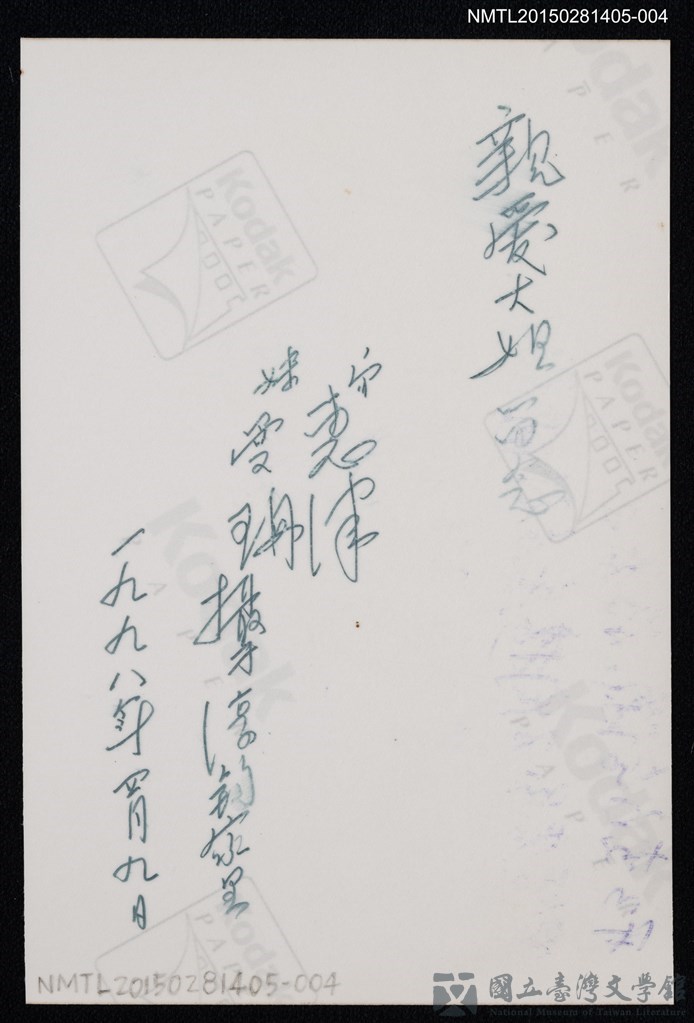 NMTL20150281405-004
親愛大姐 留念
宗惠津
妹雯珊攝淳鈞家里
一九九八年四月九日
Kodak
PAPER
Kodak
PAPER
Kodak
PAPER
NMTL20150281405-004
國立臺灣文學館
National Museum of Taiwan Literature